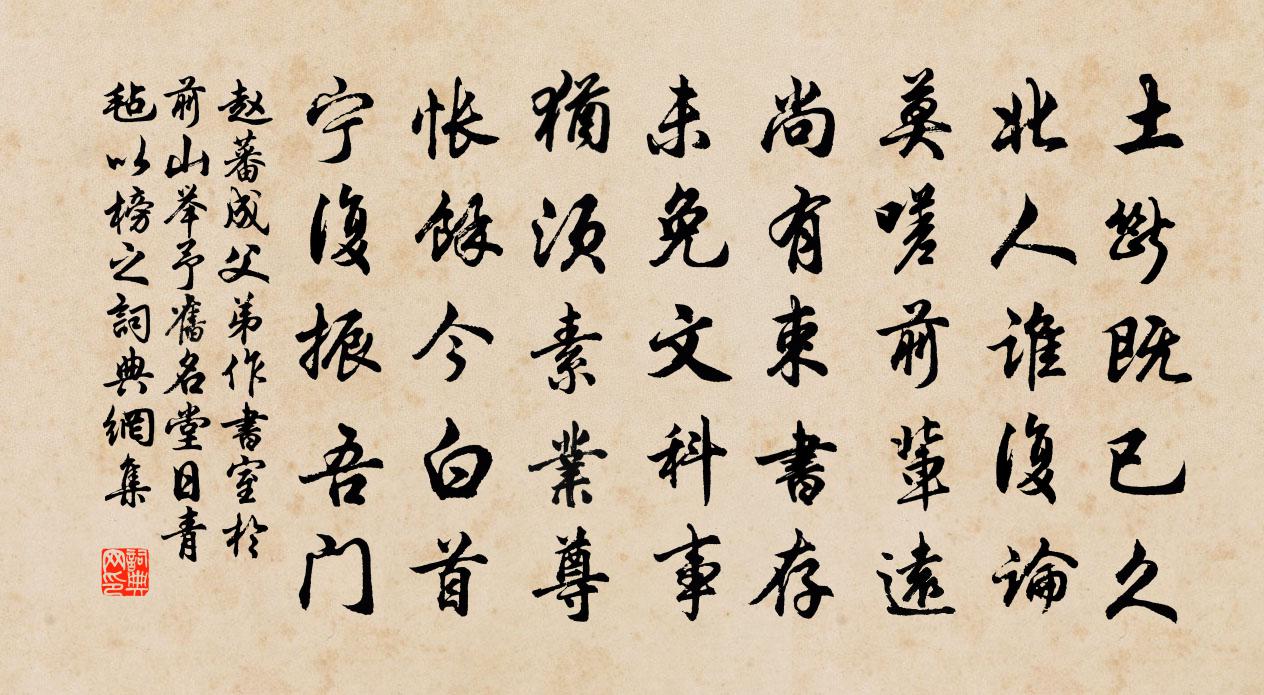 土斷既已久
北人誰復論
莫嗟前輩遠
尚有束書存
未免文科事
猶須素業尊
悵餘今白首
宁復振吾門
赵蕃成父弟作書室於
前山举予舊名堂日青
毡以榜之詞典網集
詞典
网印